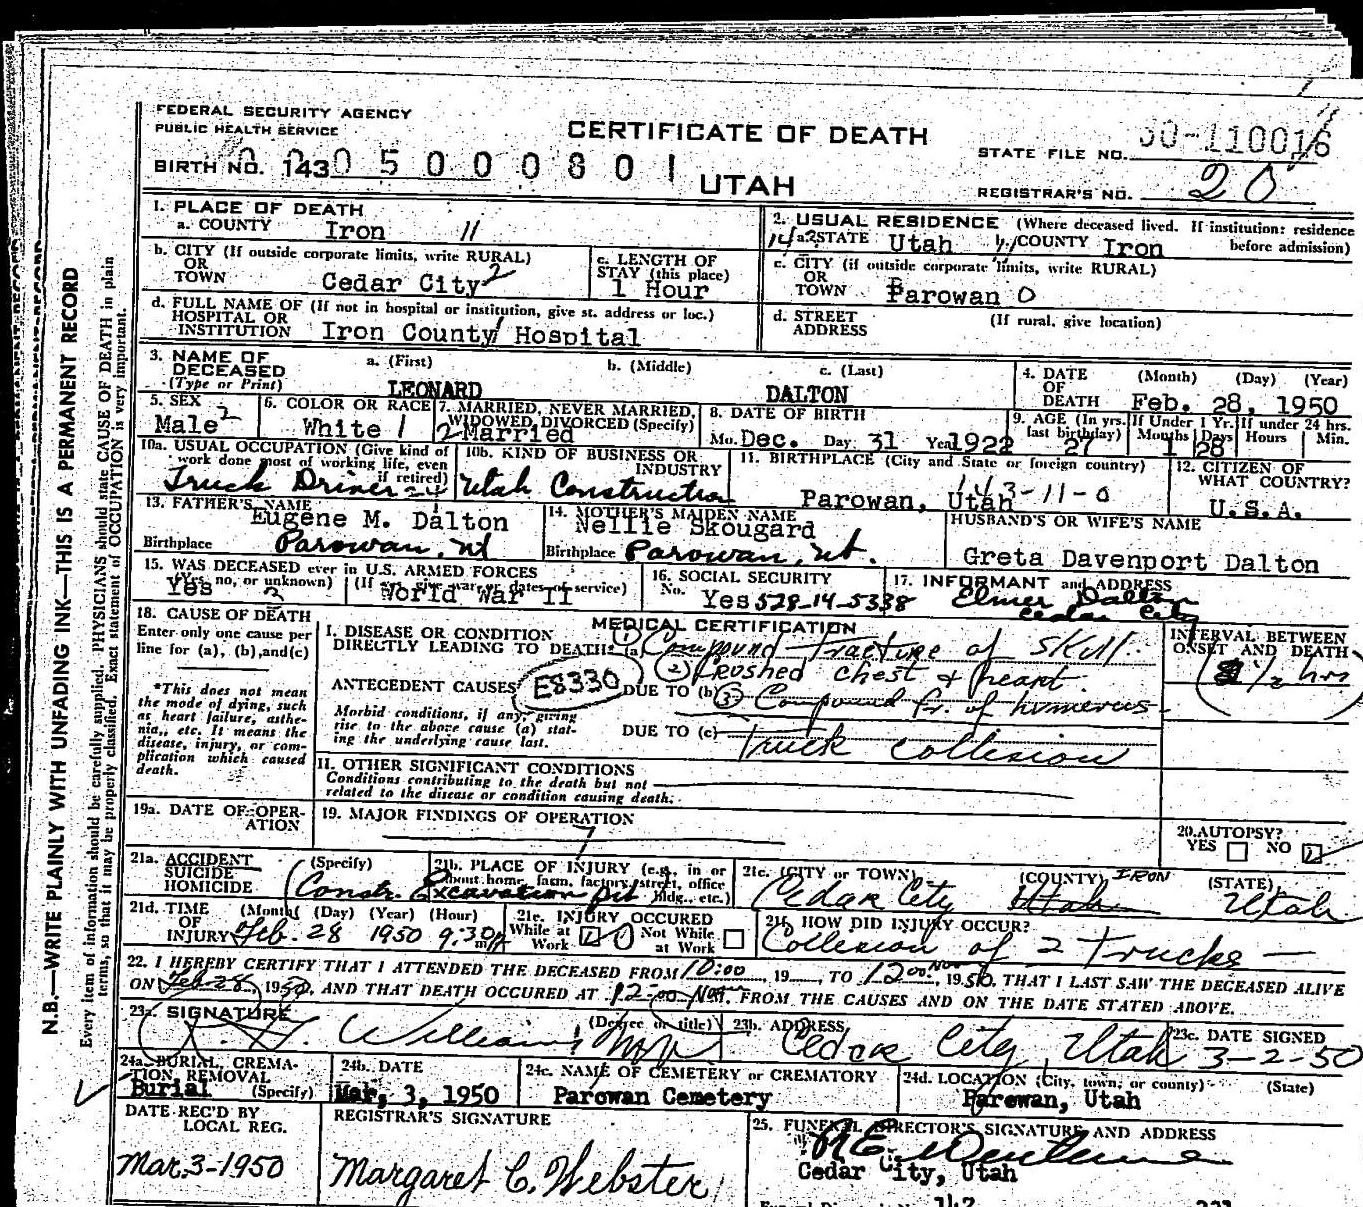 FEDERAL SECURITY AGENCY
PUBLIC HEALTH SERVICE
CERTIFICATE OF DEATH
STATE FILE NO.
BIRTH NO. 143
UTAH
REGISTRAR'S NO. 20
1. PLACE OF DEATH
a. COUNTY Iron 11
2. USUAL RESIDENCE (Where deceased lived. If institution: residence before admission)
a. STATE Utah COUNTY Iron
b. CITY (If outside corporate limits, write RURAL)
OR
TOWN Cedar City 2
c. LENGTH OF
STAY (this place)
1 Hour
c. CITY (if outside corporate limits, write RURAL)
OR
TOWN Parowan 0
d. FULL NAME OF (If not in hospital or institution, give st. address or loc.)
HOSPITAL OR
INSTITUTION Iron County Hospital
d. STREET (If rural, give location)
ADDRESS
3. NAME OF
DECEASED
(Type or Print)
a. (First) b. (Middle) c. (Last)
LEONARD DALTON
4. DATE
OF
DEATH
(Month) (Day) (Year)
Feb. 28, 1950
5. SEX
Male 2
6. COLOR OR RACE
White 1
7. MARRIED, NEVER MARRIED,
WIDOWED, DIVORCED (Specify)
2 Married
8. DATE OF BIRTH
Mo. Dec. Day 31 Year 1922
9. AGE (In yrs.
last birthday)
27
If Under 1 Yr.
Months Days
1 28
If under 24 hrs.
Hours Min.
10a. USUAL OCCUPATION (Give kind of
work done most of working life, even
if retired)
Truck Driver
10b. KIND OF BUSINESS OR
INDUSTRY
Utah Construction
11. BIRTHPLACE (City and State or foreign country)
143-11-0
Parowan, Utah
12. CITIZEN OF
WHAT COUNTRY?
U.S.A.
13. FATHER'S NAME
Eugene M. Dalton
Birthplace Parowan, Ut
14. MOTHER'S MAIDEN NAME
Nellie Skougard
Birthplace Parowan, Ut.
HUSBAND'S OR WIFE'S NAME
Greta Davenport Dalton
15. WAS DECEASED ever in U.S. ARMED FORCES
(Yes, no, or unknown) (If yes, give war or dates of service)
Yes 2 World War II
16. SOCIAL SECURITY
No. Yes 528-14-5338
17. INFORMANT and ADDRESS
Elmer Dalton
Cedar City
18. CAUSE OF DEATH
Enter only one cause per
line for (a), (b), and (c)
*This does not mean
the mode of dying, such
as heart failure, asthe-
nia, etc. It means the
disease, injury, or com-
plication which caused
death.
MEDICAL CERTIFICATION
I. DISEASE OR CONDITION
DIRECTLY LEADING TO DEATH* (a) (1) Compound fracture of skull
(2) Crushed chest & heart.
ANTECEDENT CAUSES E8330 DUE TO (b) (3) Compound fr. of humerus
Morbid conditions, if any, giving
rise to the above cause (a) stat-
ing the underlying cause last.
DUE TO (c) Truck collision
INTERVAL BETWEEN
ONSET AND DEATH
1/2 hrs
II. OTHER SIGNIFICANT CONDITIONS
Conditions contributing to the death but not
related to the disease or condition causing death.
19a. DATE OF OPER-
ATION
19. MAJOR FINDINGS OF OPERATION
20. AUTOPSY?
YES NO
21a. ACCIDENT
SUICIDE
HOMICIDE
(Specify)
21b. PLACE OF INJURY (e.g., in or
about home, farm, factory, street, office
bldg., etc.)
Constr. Excavation pit
21c. (CITY or TOWN) (COUNTY) IRON (STATE)
Cedar City Utah Utah
21d. TIME
OF
INJURY
(Month) (Day) (Year) (Hour)
Feb. 28 1950 9:30
21e. INJURY OCCURED
While at Work Not While at Work
21f. HOW DID INJURY OCCUR?
Collision of 2 Trucks
22. I HEREBY CERTIFY THAT I ATTENDED THE DECEASED FROM 10:00, 19 , TO 12:00 Noon, 1950, THAT I LAST SAW THE DECEASED ALIVE
ON Feb 28, 1950, AND THAT DEATH OCCURED AT 12:00 Noon, FROM THE CAUSES AND ON THE DATE STATED ABOVE.
23a. SIGNATURE (Degree or title)
Williams
23b. ADDRESS
Cedar City, Utah
23c. DATE SIGNED
3-2-50
24a. BURIAL, CREMA-
TION REMOVAL
Burial (Specify)
24b. DATE
Mar. 3, 1950
24c. NAME OF CEMETERY or CREMATORY
Parowan Cemetery
24d. LOCATION (City, town, or county) (State)
Parowan, Utah
DATE REC'D BY
LOCAL REG.
Mar. 3-1950
REGISTRAR'S SIGNATURE
Margaret C. Webster
25. FUNERAL DIRECTOR'S SIGNATURE AND ADDRESS
Cedar City, Utah
N.B.—WRITE PLAINLY WITH UNFADING INK—THIS IS A PERMANENT RECORD
Every item of information should be carefully supplied. PHYSICIANS should state CAUSE OF DEATH in plain
terms, so that it may be properly classified. Exact statement of OCCUPATION is very important.